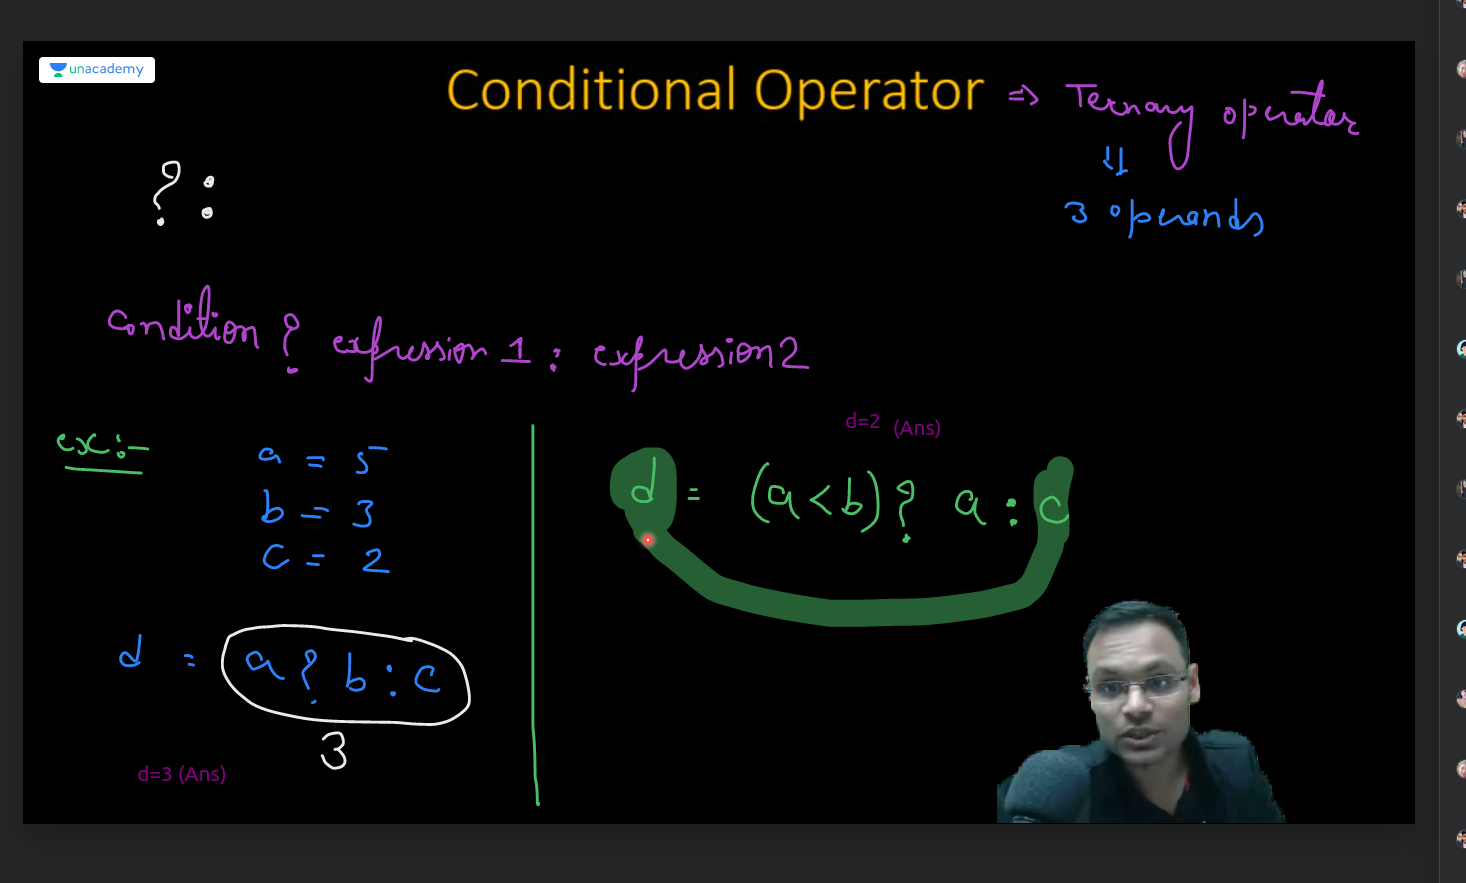 unacademy
Conditional Operator ⇒ Ternary operator
⇓
3 operands
? :
condition ? expression 1 : expression2
ex:-
a = 5
b = 3
c = 2
d = a ? b : c
3
d=3 (Ans)
d=2 (Ans)
d = (a < b) ? a : c